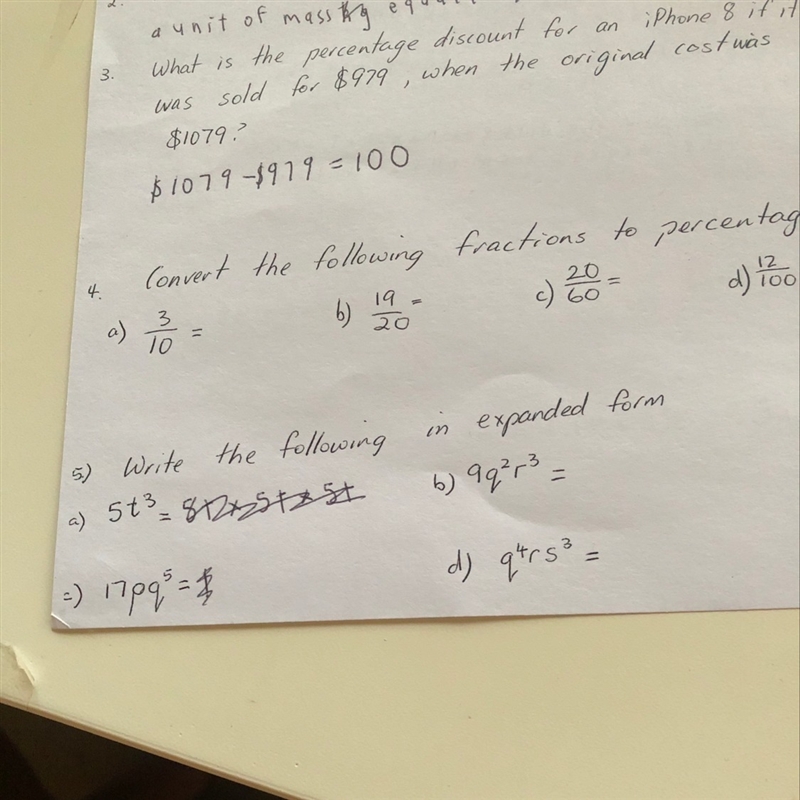 2.
a unit of mass
3. What is the percentage discount for an iPhone 8 if it
was sold for $979, when the original cost was
$1079?
$1079-$979=100
4. Convert the following fractions to
a) 3/10 = b) 19/20 = c) 20/60 = d) 12/100
5) Write the following in expanded form
a) 5t³ = b) 9q²r³ =
17pq⁵ = d) q⁴rs³ =